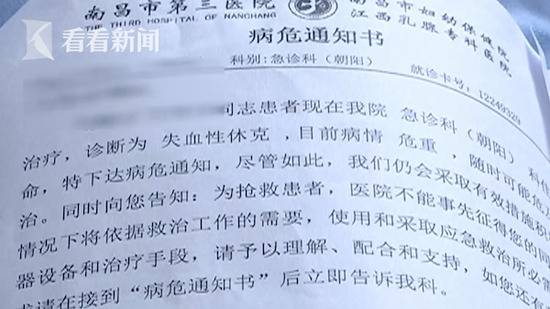 南昌市第三医院
THE THIRD HOSPITAL OF NANCHANG
南昌市妇幼保健院
江西乳腺专科医院
看看新闻
病危通知书
科别:急诊科(朝阳)
就诊卡号:12249929
同志患者现在我院 急诊科(朝阳) 科住
治疗，诊断为 失血性休克 ,目前病情 危重 ，随时可能危及
命，特下达病危通知，尽管如此，我们仍会采取有效措施积
治。同时向您告知：为抢救患者，医院不能事先征得您的同
情况下将依据救治工作的需要，使用和采取应急救治所必需
器设备和治疗手段，请予以理解、配合和支持，如您还有
求请在接到“病危通知书”后立即告诉我科。